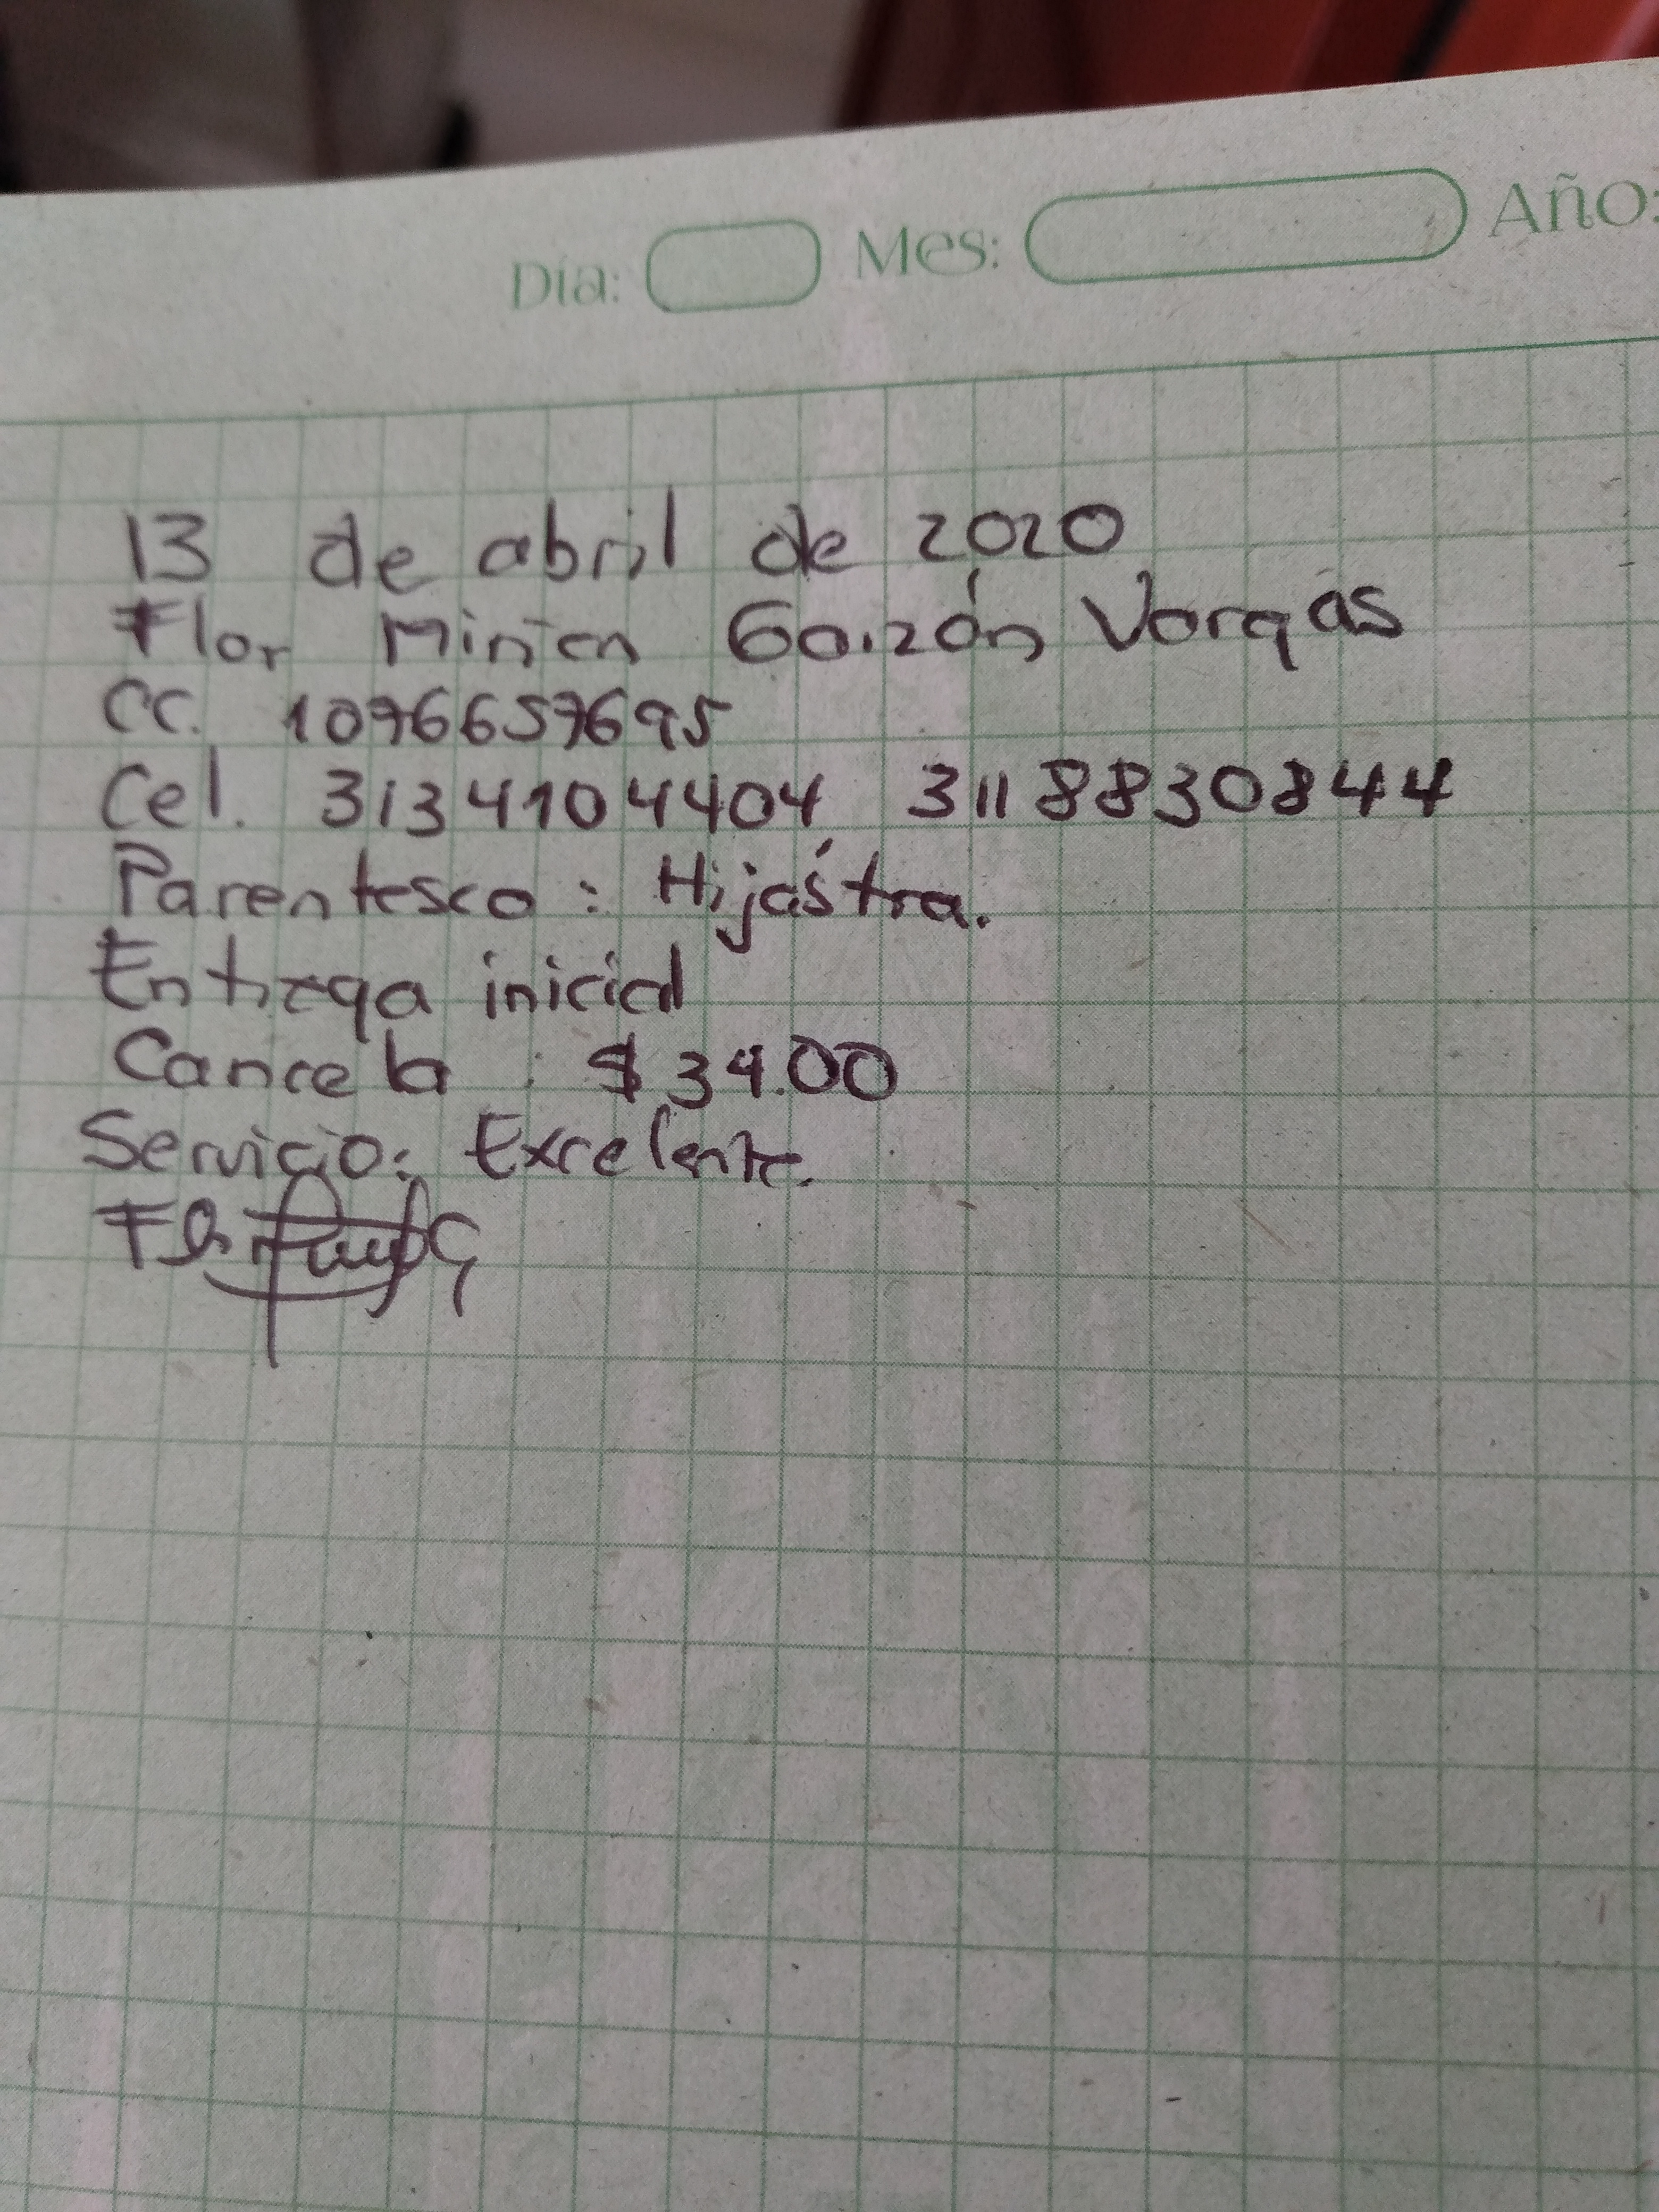 Día: Mes: Año:
13 de abril de 2020
Flor Miriam Garzón Vargas
CC. 1076657695
Cel. 3134104404 3118830844
Parentesco: Hijastra.
Entrega inicial
Cancela: $34.00
Servicio: Excelente.